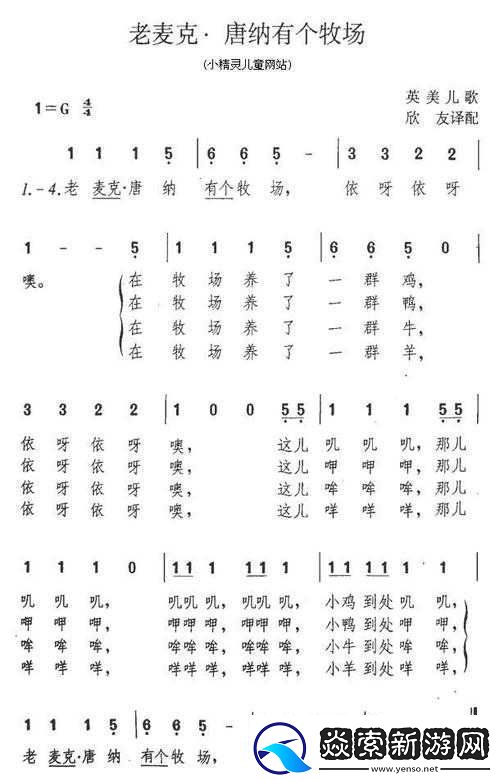 老麦克·唐纳有个牧场
(小精灵儿童网站)
1=G 4/4
英美儿歌
欣 友译配
1 1 1 5̣ | 6̣ 6̣ 5̣ - | 3 3 2 2
1.-4.老 麦克·唐 纳 有个牧 场, 依 呀 依 呀
1 - - 5̣ | 1 1 1 5̣ | 6̣ 6̣ 5̣ 0
噢。 在 牧 场 养 了 一 群 鸡,
在 牧 场 养 了 一 群 鸭,
在 牧 场 养 了 一 群 牛,
在 牧 场 养 了 一 群 羊,
3 3 2 2 | 1 0 0 5̣5̣ | 1 1 1 5̣5̣
依 呀 依 呀 噢, 这儿 叽 叽 叽, 那儿
依 呀 依 呀 噢, 这儿 呷 呷 呷, 那儿
依 呀 依 呀 噢, 这儿 哞 哞 哞, 那儿
依 呀 依 呀 噢, 这儿 咩 咩 咩, 那儿
1 1 1 0 | 11 1 11 1 | 11 11 1 1
叽 叽 叽, 叽叽 叽, 叽叽 叽, 小鸡 到处 叽 叽,
呷 呷 呷, 呷呷 呷, 呷呷 呷, 小鸭 到处 呷 呷,
哞 哞 哞, 哞哞 哞, 哞哞 哞, 小牛 到处 哞 哞,
咩 咩 咩, 咩咩 咩, 咩咩 咩, 小羊 到处 咩 咩,
1 1 1 5̣ | 6̣ 6̣ 5̣ -
老 麦克·唐 纳 有个牧 场,
焱索新游网
www.yenso.net